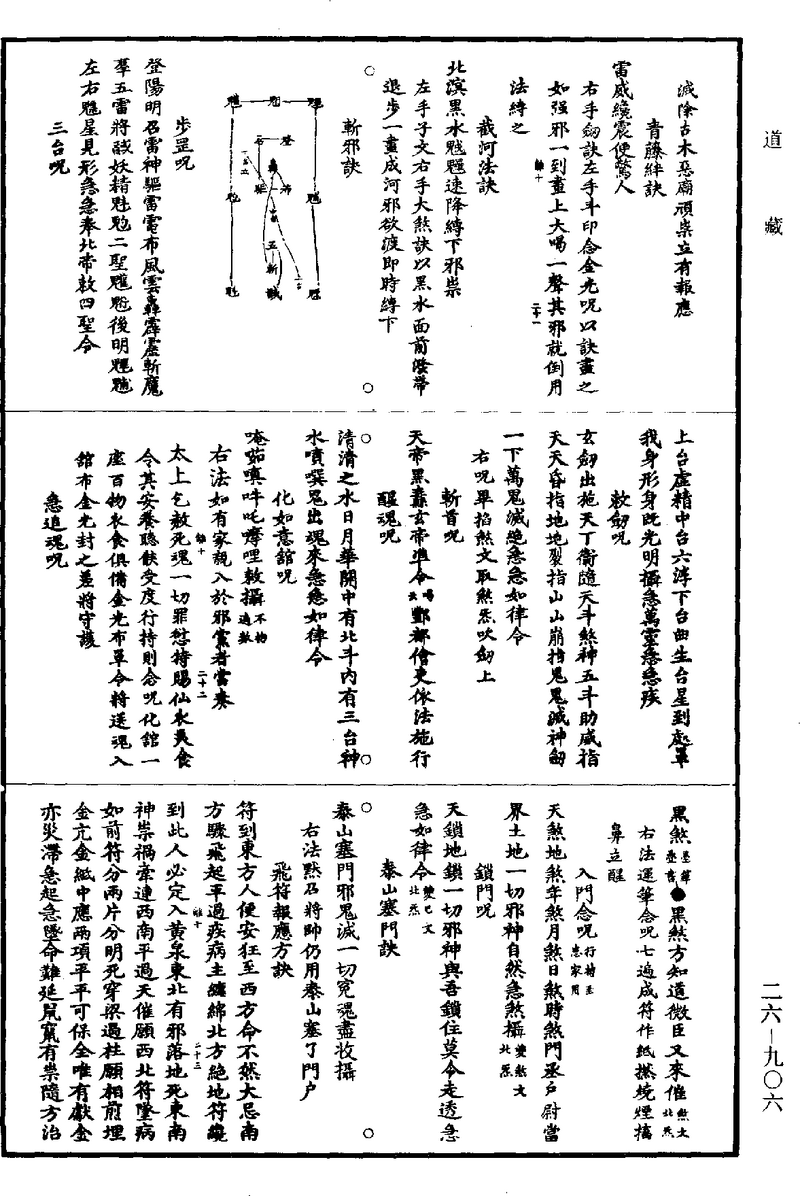 道藏
滅除古木惡廟頑祟立有報應
青藤絆訣
雷威纔震便驚人
右手劒訣左手斗印念金光呪以訣畫之
如强邪一到畫上大喝一聲其邪就倒用
離十
二十一
法縛之
截河法訣
北濵黑水魒魓速降縛下邪祟
左手子文右手大煞訣以黑水面前潑帶
退步一畫成河邪欲渡即時縛下
斬邪訣
步罡呪
登陽明召雷神驅雷電布風雲轟霹靂斬魔
羣五雷將馘妖精魁
二聖
後明
左右魓星見形急急奉北帝敕四聖令
三台呪
上台虛精中台六淳下台曲生台星到處罩
我身形身既光明攝急萬靈急急疾
敕劒呪
玄劒出施天丁衛隨天斗煞神五斗助威指
天天昏指地地裂指山山崩指鬼鬼滅神劒
一下萬鬼滅絕急急如律令
右呪畢掐煞文取煞炁吹劒上
斬首呪
天帝黑纛玄帝準令喝
酆都儈吏依法施行
醒魂呪
清清之水日月華開中有北斗內有三台神
水噴噀鬼出魂來急急如律令
化如意館呪
唵茹嗔吽吒㗶哩敕攝不拘遍數
右法如有家親入於邪黨者當奏
離十
二十二
太上乞赦死魂一切罪愆特賜仙衣美食
令其安養聽飫受度行持則念呪化館一
座百物衣食俱備金光布單令將送魂入
館布金光封之差將守護
急追魂呪
黑煞墨筆畫書●黑煞方知道微臣又來催煞文北炁
右法運筆念呪七遍成符作紙撚燒煙搐
鼻立醒
入門念呪行持至患家用
天煞地煞年煞月煞日煞時煞門丞戶尉當
界土地一切邪神自然急煞攝變煞文北炁
鎖門呪
天鎖地鎖一切邪神與吾鎖住莫令走透急
急如律令變巳文北炁
泰山塞門訣
泰山塞門邪鬼滅一切寃魂盡收攝
右法黙召將帥仍用泰山塞了門戶
飛符報應方訣
符到東方人便安狂至西方命不然大忌南
方驟飛起平過疾病主纏綿北方絶地符纔
離十
二十三
到此人必定入黄泉東北有邪落地死東南
神祟禍牽連西南平過天催願西北符墜病
如前符分兩片分明死穿梁過柱願相前埋
金亢金紙中應兩項平平可保全唯有獻金
亦災滯急起急墜命難延鼠竄有祟隨方治
二六—九〇六